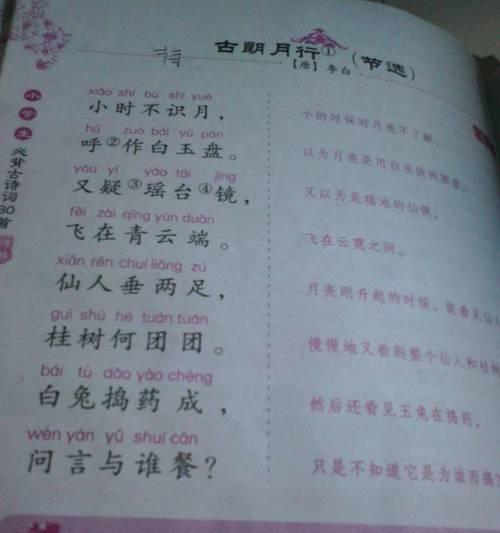 古朗月行①（节选）
【唐】李白
小学生必背古诗词80首
xiǎo shí bù shí yuè
小时不识月，
小的时候对月亮不了解，
hū zuò bái yù pán
呼②作白玉盘。
以为月亮是用白玉做的圆盘。
yòu yí yáo tái jìng
又疑③瑶台④镜，
又以为是瑶池的仙镜，
fēi zài qīng yún duān
飞在青云端。
飞在云霓之间。
xiān rén chuí liǎng zú
仙人垂两足，
月亮刚升起的时候，能看见仙人
guì shù hé tuán tuán
桂树何团团。
慢慢地又看到整个仙人和桂树
bái tù dǎo yào chéng
白兔捣药成，
然后还看见玉兔在捣药，
wèn yán yǔ shuí cān
问言与谁餐？
只是不知道它是为谁而捣？